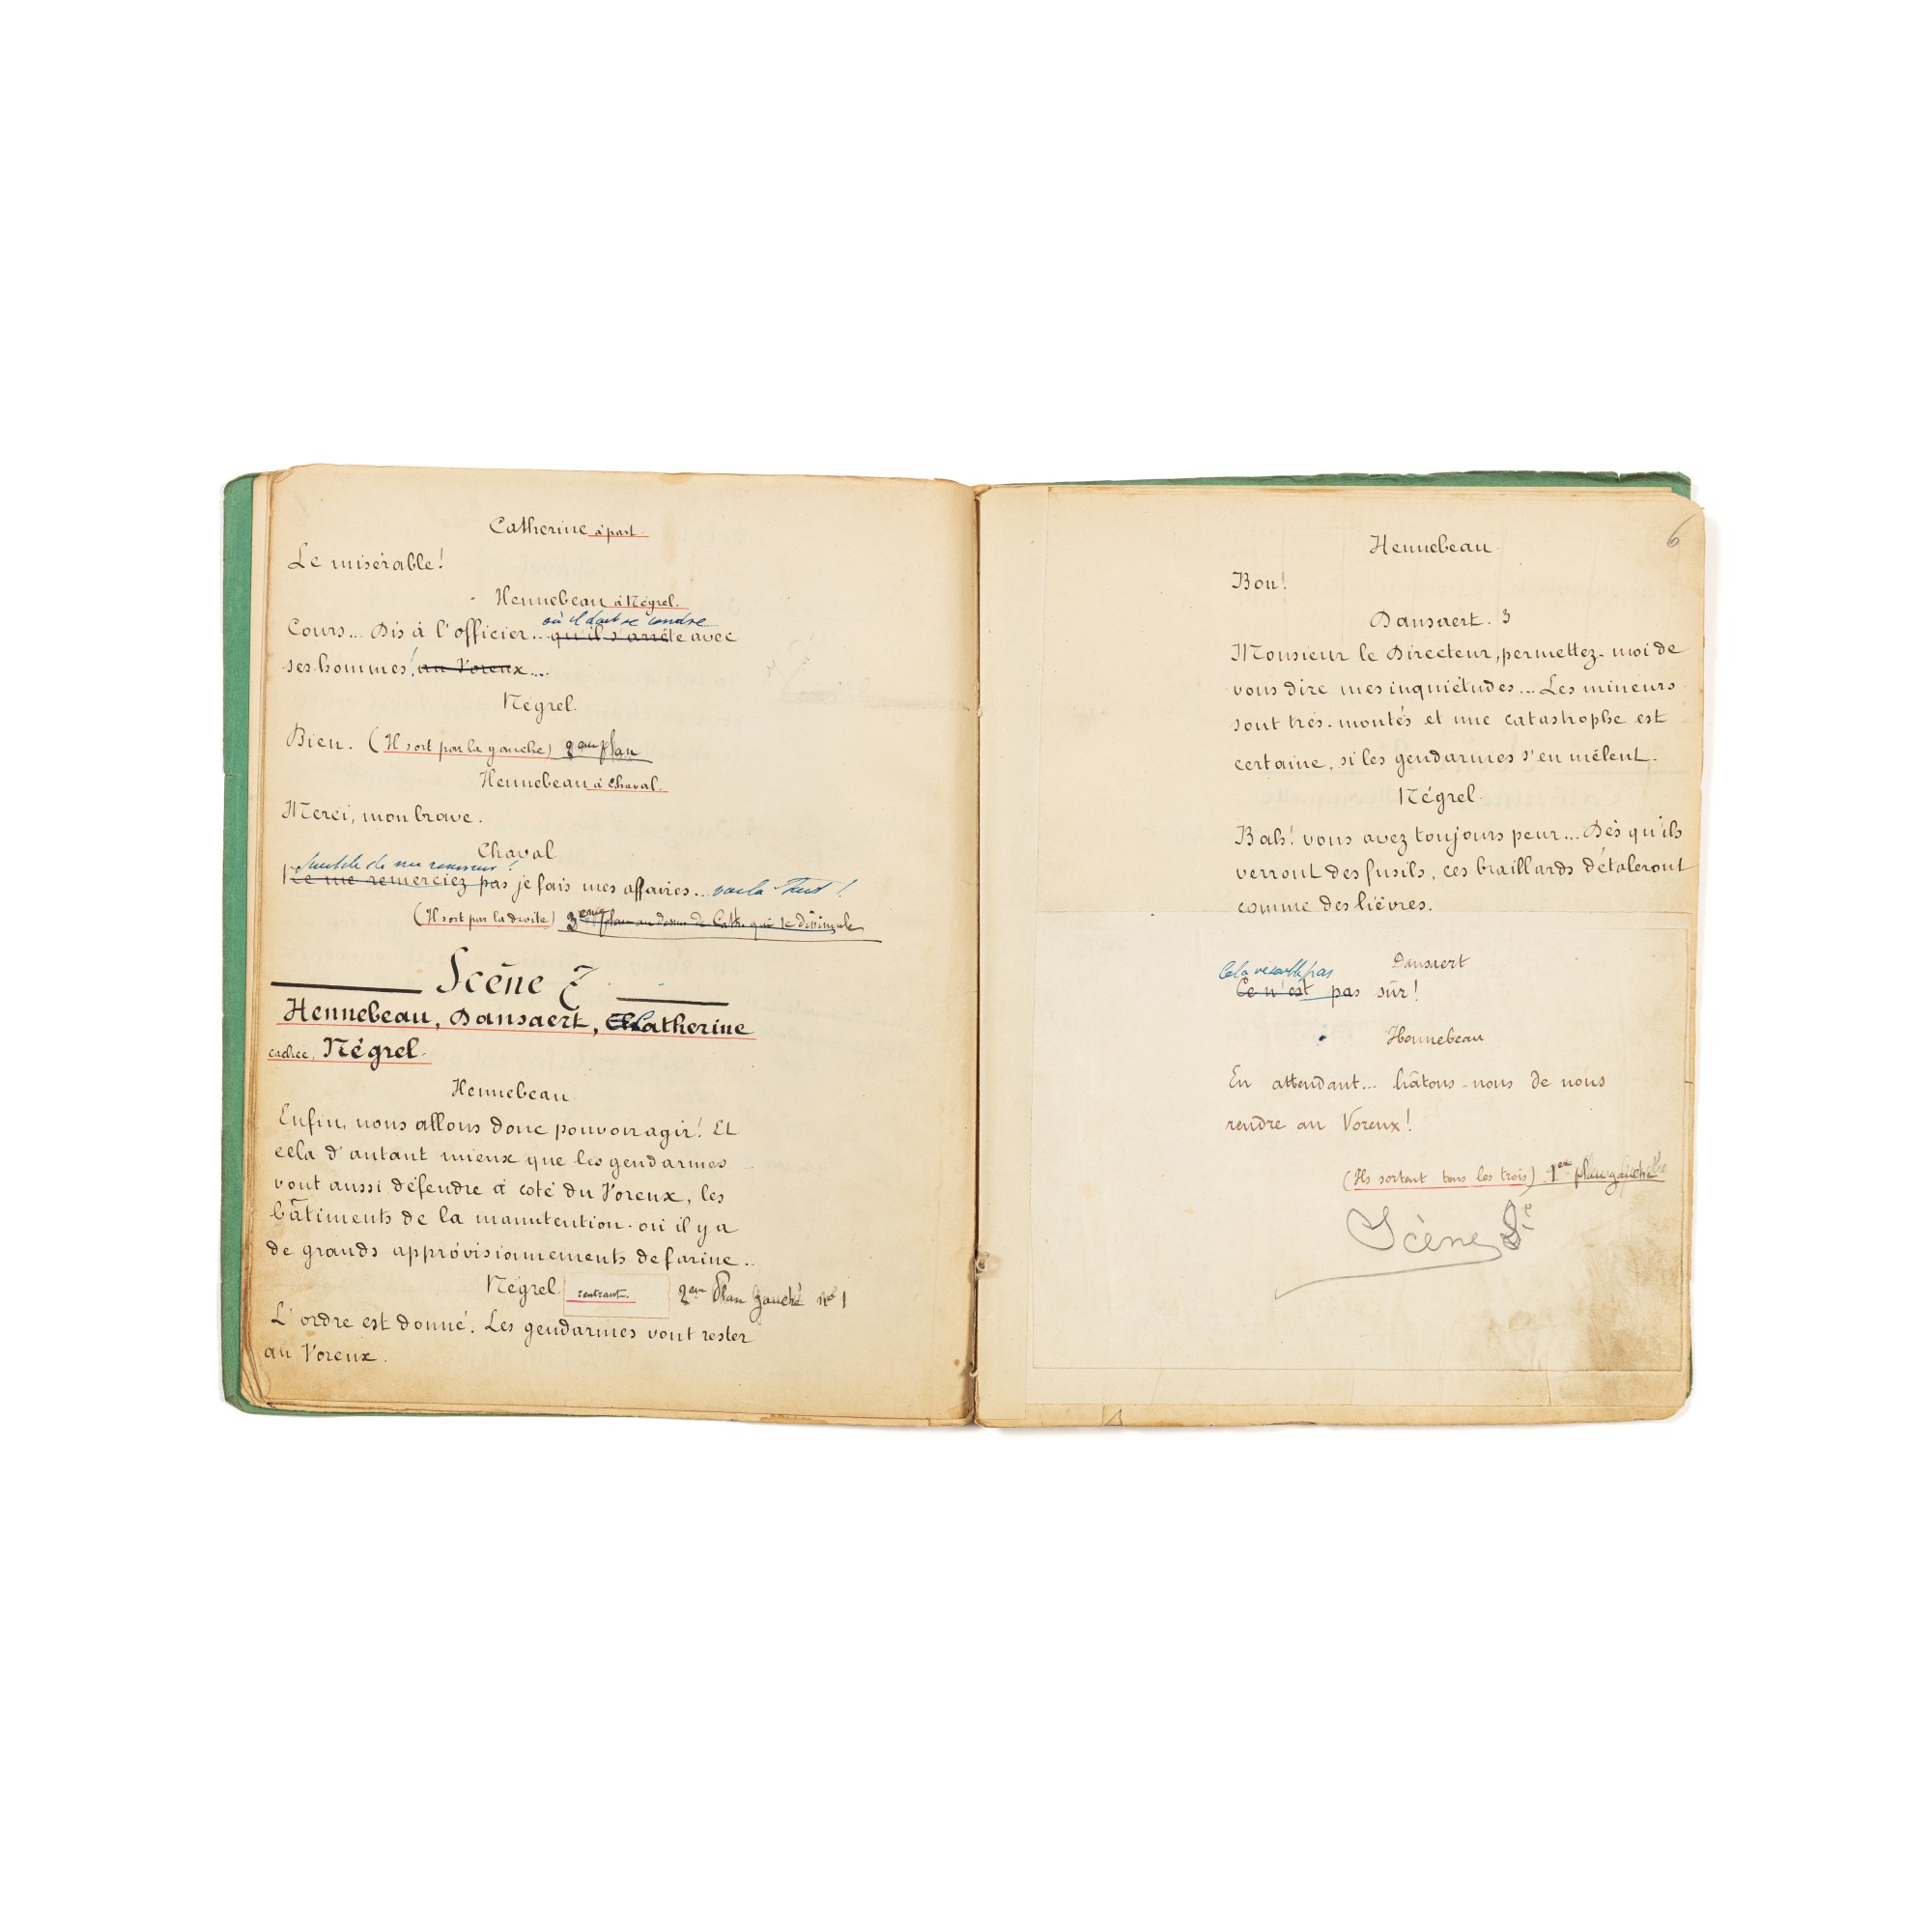 Catherine à part.
Le misérable!
Hennebeau à Négrel.
où il doit se rendre
Cours... Dis à l'officier... qu'il s'arrête avec
ses hommes! au Voreux....
Négrel.
Bien. (Il sort par la gauche) 2eme plan
Hennebeau à Chaval.
Merci, mon brave.
Chaval
Inutile de me remercier!
Ne me remerciez pas je fais mes affaires... voila tout!
(Il sort par la droite) 3eme plan au dessus de Cath. qui se dissimule
Scène 7
Hennebeau, Dansaert, Catherine
cachée, Négrel.
Hennebeau
Enfin, nous allons donc pouvoir agir! Et
cela d'autant mieux que les gendarmes
vont aussi défendre à coté du Voreux, les
bâtiments de la manutention. où il y a
de grands approvisionnements de farine..
Négrel. rentrant. 2eme Plan gauche no 1
L'ordre est donné. Les gendarmes vont rester
au Voreux.
6
Hennebeau.
Bon!
Dansaert. 3
Monsieur le Directeur, permettez-moi de
vous dire mes inquiétudes... Les mineurs
sont très-montés et une catastrophe est
certaine, si les gendarmes s'en mêlent.
Négrel.
Bah! vous avez toujours peur... Dès qu'ils
verront des fusils, ces braillards détaleront
comme des lièvres.
Dansaert
Cela n'est pas
Ce n'est pas sûr!
Hennebeau
En attendant... hâtons-nous de nous
rendre au Voreux!
(Ils sortent tous les trois) 1er plan gauche
Scène 8e